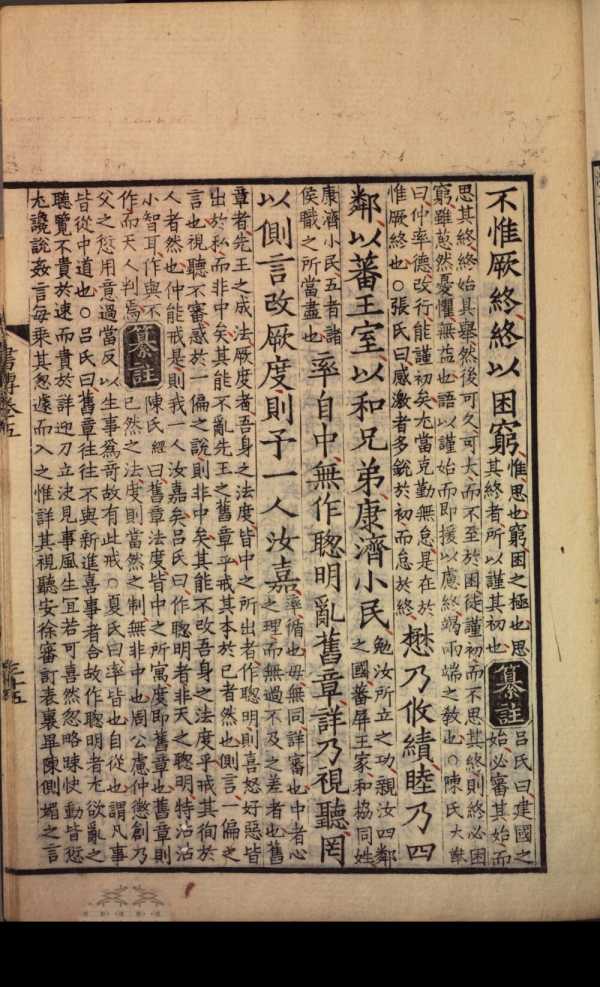 不惟厥終終以困窮
惟思也窮困之極也思
其終者所以謹其初也
纂註
呂氏曰建國之
始必審其始而
思其終終始具舉然後可久可大而不至於困徒謹初而不思其終則終必困
窮雖䓗然憂懼無益也語以謹始而即援以慮終竭兩端之教也○陳氏大猷
曰仲率德改行能謹初矣尤當克勤無怠是在於
惟厥終也○張氏曰感激者多銳於初而怠於終
懋乃攸績睦乃四
鄰以蕃王室以和兄弟康濟小民
勉汝所立之功親汝四鄰
之國蕃屏王家和協同姓
康濟小民五者諸
侯職之所當盡也
率自中無作聰明亂舊章詳乃視聽罔
以側言改厥度則予一人汝嘉
率循也毋無同詳審也中者心
之理而無過不及之差者也舊
章者先王之成法厥度者吾身之法度皆中之所出者作聰明則喜怒好惡皆
出於私而非中矣其能不亂先王之舊章乎戒其本於己者然也側言一偏之
言也視聽不審惑於一偏之說則非中矣其能不改吾身之法度乎戒其徇於
人者然也仲能戒是則我一人汝嘉矣呂氏曰作聰明者非天之聰明特沾沾
小智耳作與不
作而天人判焉
纂註
陳氏經曰舊章法度皆中之所寓度即舊章也舊章則
已然之法度則當然之制無非中也周公慮仲懲創乃
父之愆用意過當反以生事爲奇故有此戒○夏氏曰率皆也自從也謂凡事
皆從中道也○呂氏曰舊章往往不與新進喜事者合故作聰明者尤欲亂之
聽覽不貴於速而貴於詳迎刃立決見事風生冝若可喜然忽略昧快動皆愆
尤讒說姦言每乘其怱遽而入之惟詳其視聽安徐審訂表裏畢陳側媚之言
書傳卷五